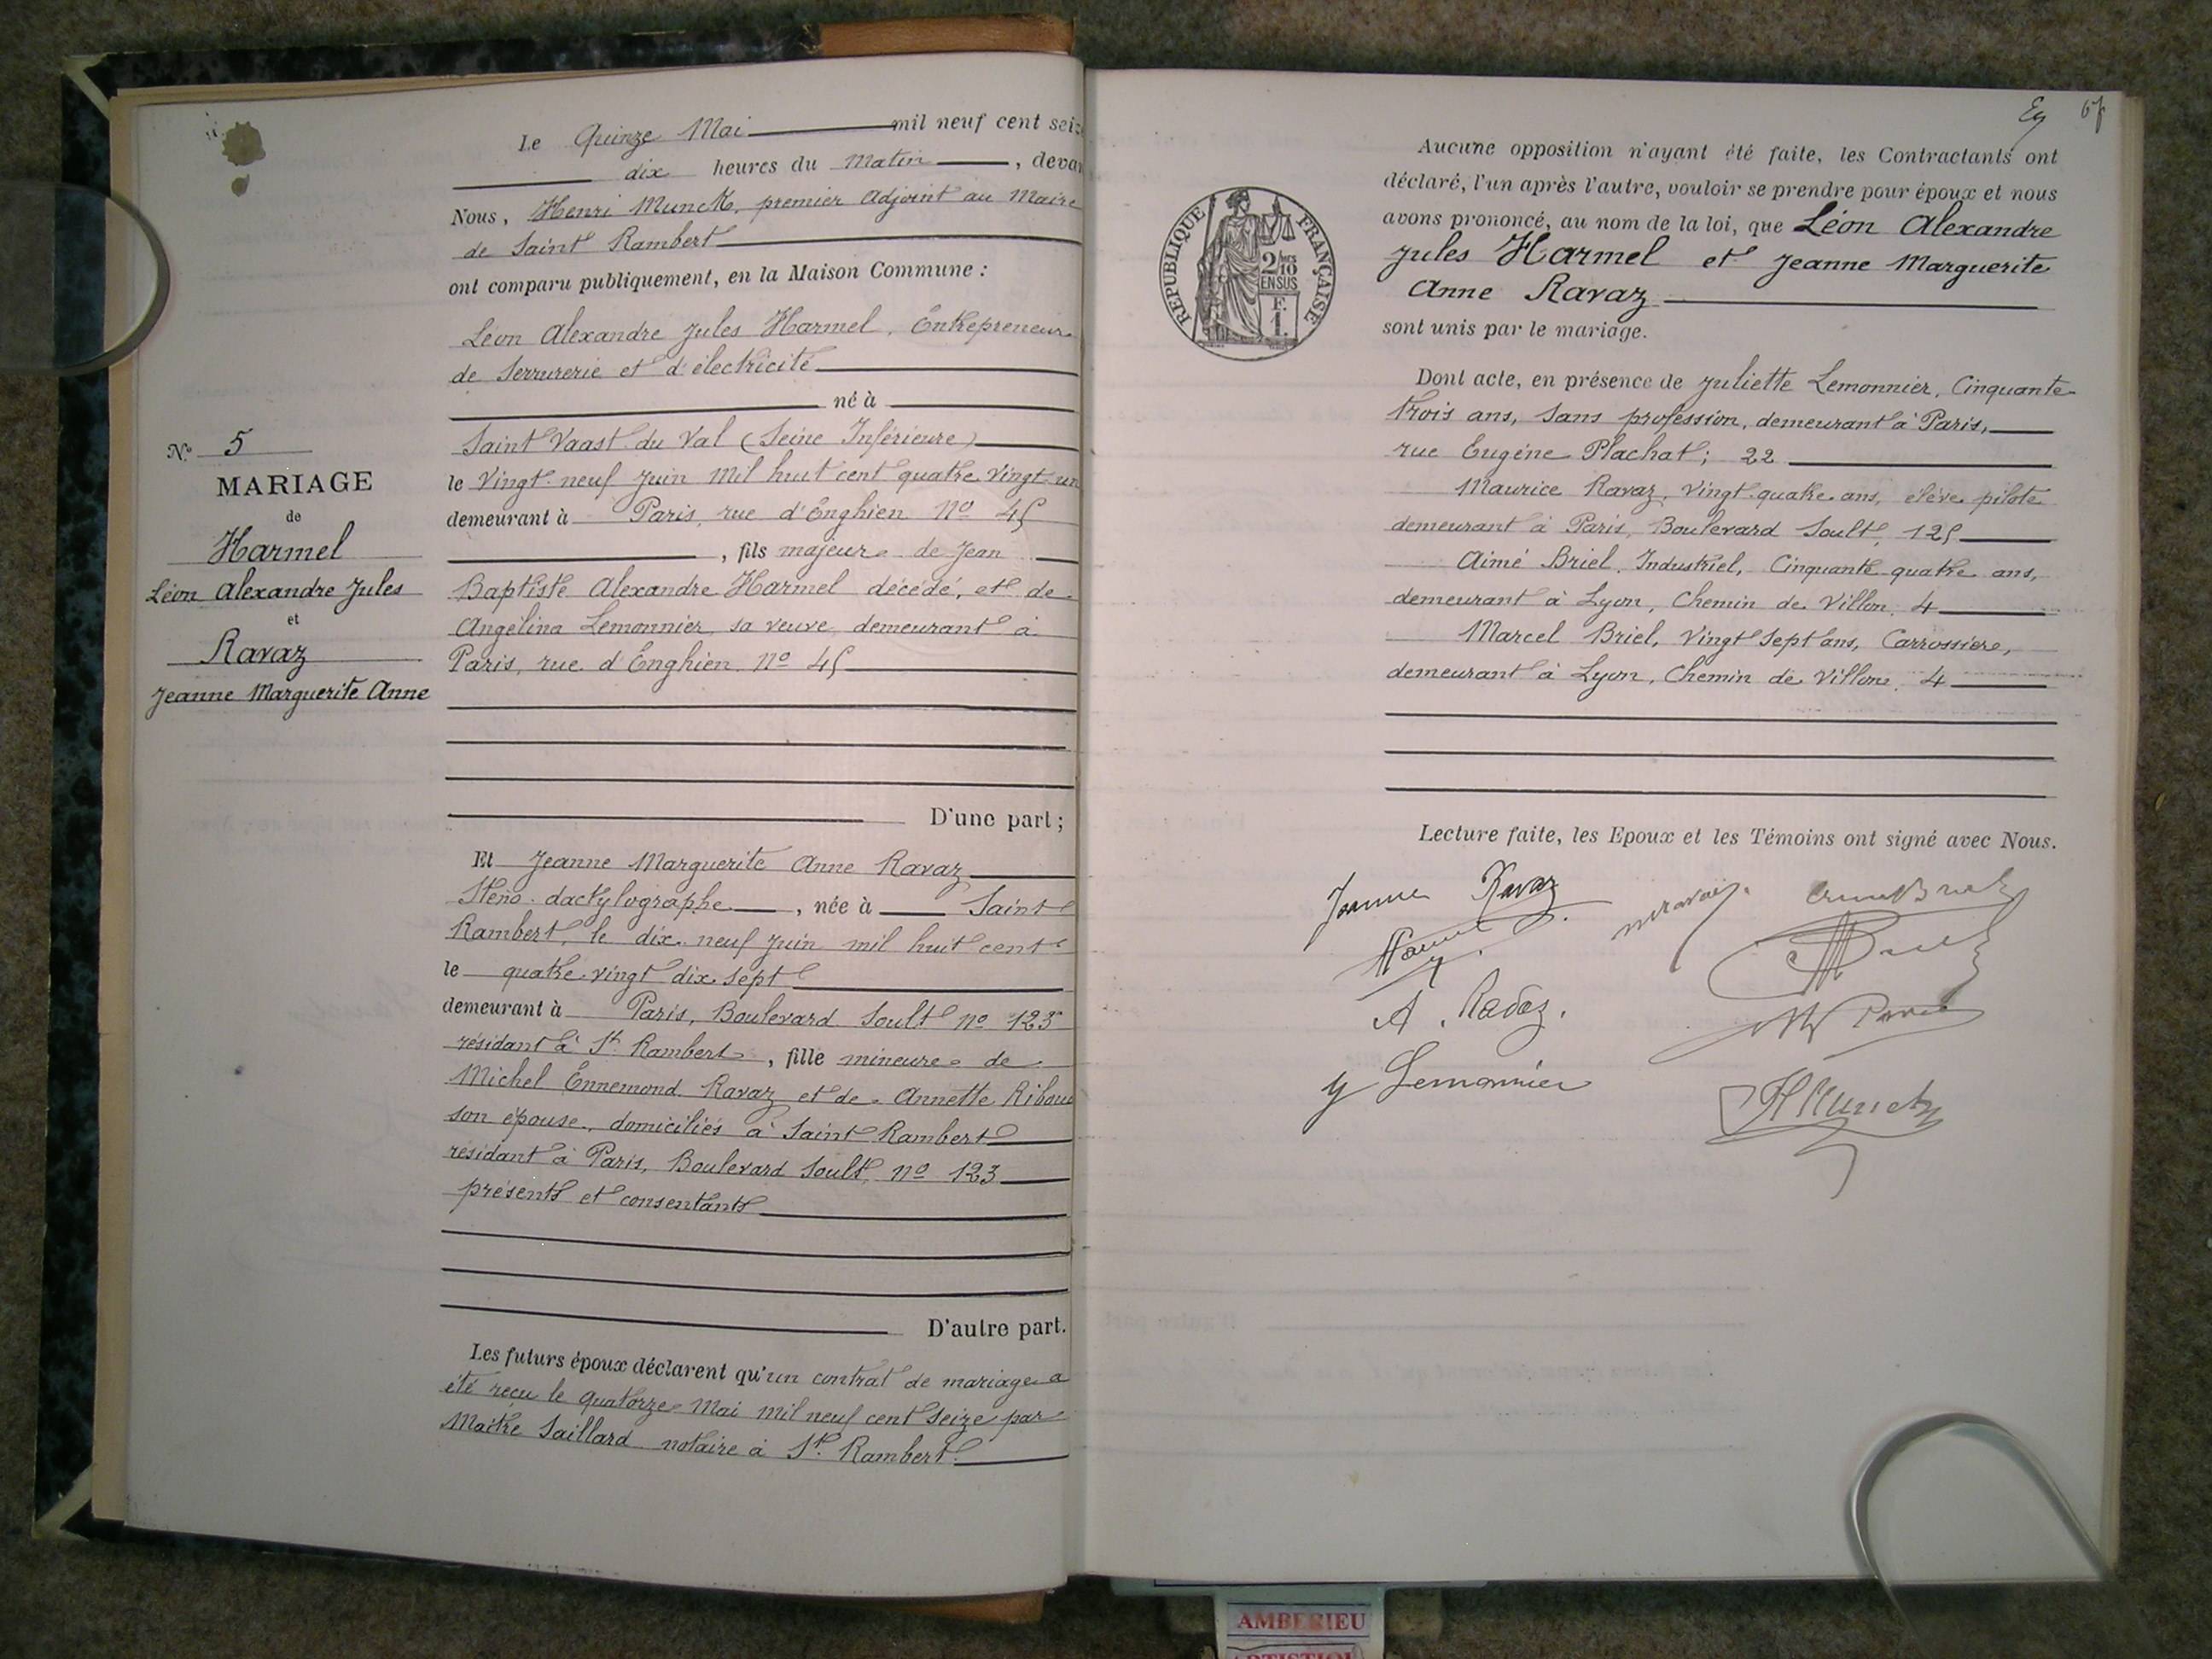 Le Quinze Mai mil neuf cent seize
dix heures du Matin, devant
Nous, Henri Munck, premier Adjoint au Maire
de Saint Rambert
ont comparu publiquement, en la Maison Commune :
Léon Alexandre Jules Harmel, Entrepreneur
de Serrurerie et d'électricité
né à
Saint Vaast du Val (Seine Inférieure)
le Vingt-neuf Juin Mil huit cent quatre Vingt-un
demeurant à Paris, rue d'Enghien No 45
, fils majeur de Jean
Baptiste Alexandre Harmel décédé, et de
Angélina Lemonnier, sa veuve, demeurant à
Paris, rue d'Enghien No 45
D'une part ;
No 5
MARIAGE
de
Harmel
Léon Alexandre Jules
et
Ravaz
Jeanne Marguerite Anne
Et Jeanne Marguerite Anne Ravaz
Sténo-dactylographe, née à Saint
Rambert, le dix-neuf Juin mil huit cent
le quatre-vingt dix-sept
demeurant à Paris, Boulevard Soult no 123
résidant à St Rambert, fille mineure de
Michel Ennemond Ravaz et de Annette
son épouse, domiciliés à Saint Rambert
résidant à Paris, Boulevard Soult, No 123
présents et consentants
D'autre part.
Les futurs époux déclarent qu'un contrat de mariage a
été reçu le quatorze Mai mil neuf cent seize par
Maître Saillard notaire à St Rambert.
67
RÉPUBLIQUE FRANÇAISE
2/10
EN SUS
F.
1.
Aucune opposition n'ayant été faite, les Contractants ont
déclaré, l'un après l'autre, vouloir se prendre pour époux et nous
avons prononcé, au nom de la loi, que Léon Alexandre
Jules Harmel et Jeanne Marguerite
Anne Ravaz
sont unis par le mariage.
Dont acte, en présence de Juliette Lemonnier, Cinquante-
trois ans, Sans profession, demeurant à Paris,
rue Eugène Plachat ; 22
Maurice Ravaz, Vingt-quatre ans, élève pilote
demeurant à Paris, Boulevard Soult, 125
Aimé Briel, Industriel, Cinquante-quatre ans,
demeurant à Lyon, Chemin de Villon, 4
Marcel Briel, Vingt Sept ans, Carrossier,
demeurant à Lyon, Chemin de Villon, 4
Lecture faite, les Epoux et les Témoins ont signé avec Nous.
Jeanne Ravaz
Harmel
A. Ravaz.
J Lemonnier
H Munck
AMBERIEU